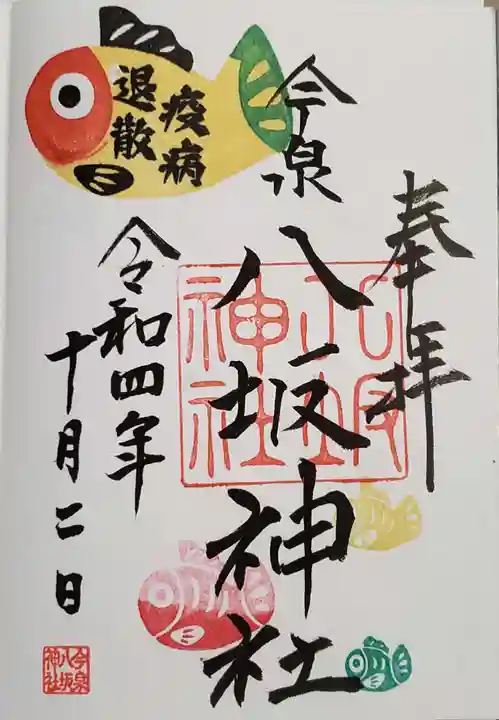 奉拝
今泉
八坂神社
八坂
神社
疫病
退散
令和四年
十月二日
今泉
八坂
神社